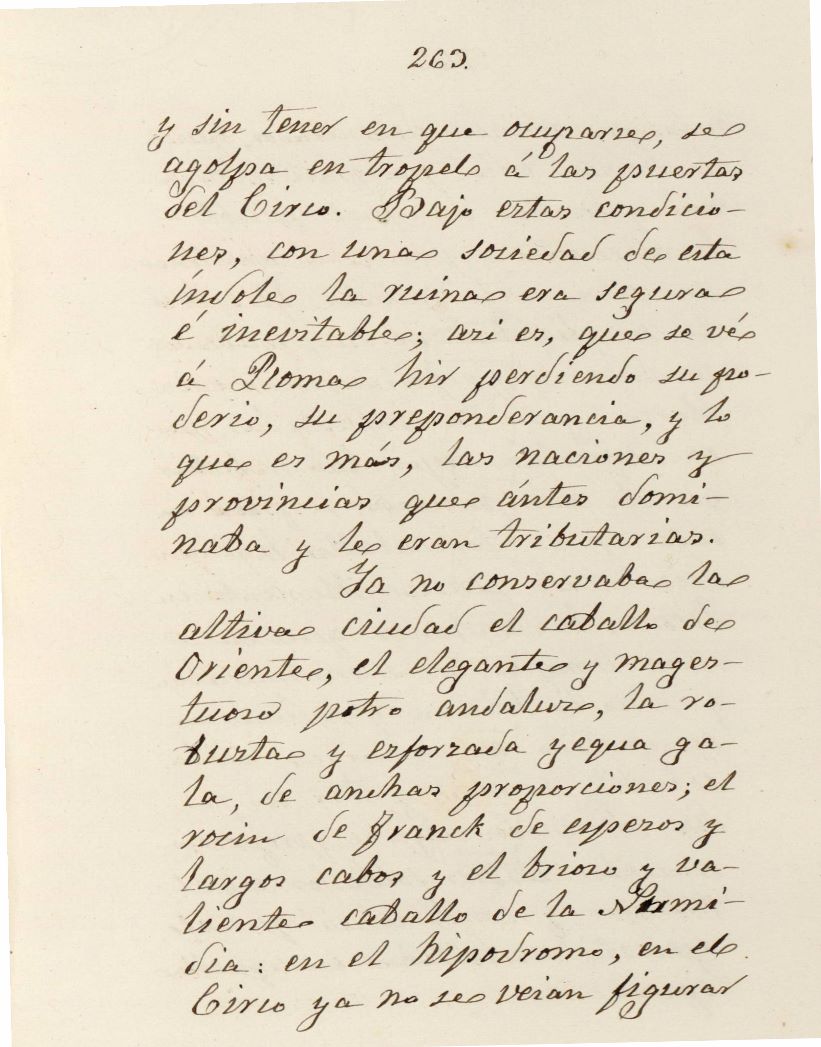 263.
y sin tener en que ocuparse, se
agolpa en tropel á las puertas
del Circo. Bajo estas condicio-
nes, con una sociedad de esta
índole la ruina era segura
é inevitable; asi es, que se vé
á Roma hir perdiendo su po-
derio, su preponderancia, y lo
que es más, las naciones y
provincias que ántes domi-
naba y le eran tributarias.
Ya no conservaba la
altiva ciudad el caballo de
Oriente, el elegante y mages-
tuoso potro andaluz, la ro-
busta y esforzada yegua ga-
la, de anchas proporciones; el
rocin de Franck de espesos y
largos cabos y el brioso y va-
liente caballo de la Numi-
dia: en el hipodromo, en el
Circo ya no se veian figurar